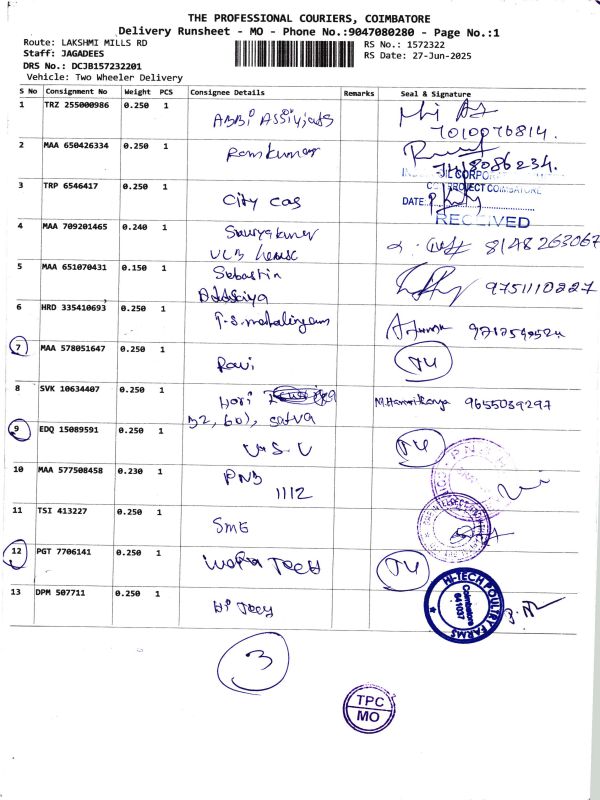 THE PROFESSIONAL COURIERS, COIMBATORE
Delivery Runsheet - MO - Phone No.:9047080280 - Page No.:1
Route: LAKSHMI MILLS RD
RS No.: 1572322
Staff: JAGADEES
RS Date: 27-Jun-2025
DRS No.: DCJB157232201
Vehicle: Two Wheeler Delivery
S No Consignment No Weight PCS Consignee Details Remarks Seal & Signature
1 TRZ 255000986 0.250 1
7010076814.
2 MAA 650426334 0.250 1 Ramkumar
7418086234.
3 TRP 6546417 0.250 1 City Gas
DATE:
RECEIVED
4 MAA 709201465 0.240 1 Suryakumar 8148263067
UCB house
5 MAA 651070431 0.150 1 Sebastin 9751110227
6 HRD 335410693 0.250 1 T.S. mahalingam
7 MAA 578051647 0.250 1 Ravi
8 SVK 10634407 0.250 1 Hari 9655039297
9 EDQ 15089591 0.250 1 V.S.V
10 MAA 577508458 0.230 1 PNB
1112
11 TSI 413227 0.250 1 SME
12 PGT 7706141 0.250 1 Tech
13 DPM 507711 0.250 1 Hi Tech
HI-TECH POULTRY FARMS
Coimbatore
641037
3
TPC
MO